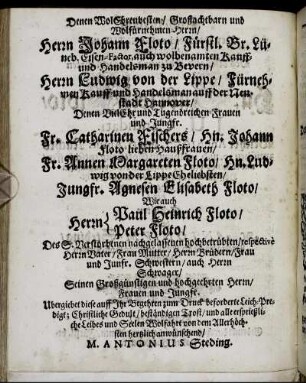 Denen WolEhrenvesten/ Großachtbarn und
Wolfürnehmen Herrn/
Herrn Johann Floto/ Fürstl. Br. Lü-
neb. Eisen-Factor, auch wolbenamten Kauff-
und Handelsman zu Bevern/
Herrn Ludwig von der Lippe/ Fürneh-
men Kauff und Handelsman auff der Neu-
stadt Hannover/
Denen VielEhr und Tugendreichen Frauen
und Jungfr.
Fr. Catharinen Eschers/ Hn. Johann
Floto lieben Haußfrauen/
Fr. Annen Margareten Floto/ Hn. Lud-
wig von der Lippe Eheliebsten/
Jungfr. Agnesen Elisabeth Floto/
Wie auch
Herrn { Paul Heinrich Floto/
Peter Floto/
Des S. Verstorbenen nachgelassenen hochbetrübten/ respectivè
Herrn Vater/ Frau Mutter/ Herrn Brüdern/ Frau
und Junfr. Schwestern/ auch Herrn
Schwager/
Seinen Großgünstigen und hochgeehrten Herrn/
Frauen und Jungfr.
Ubergiebet diese auff Ihr Begehren zum Druck beforderte Leich-Pre-
digt; Christliche Gedult/ beständigen Trost/ und alle ersprießli-
che Leibes und Seelen Wolfahrt von dem Allerhöch-
sten hertzlich anwünschend/
M. ANTONIUS Steding.